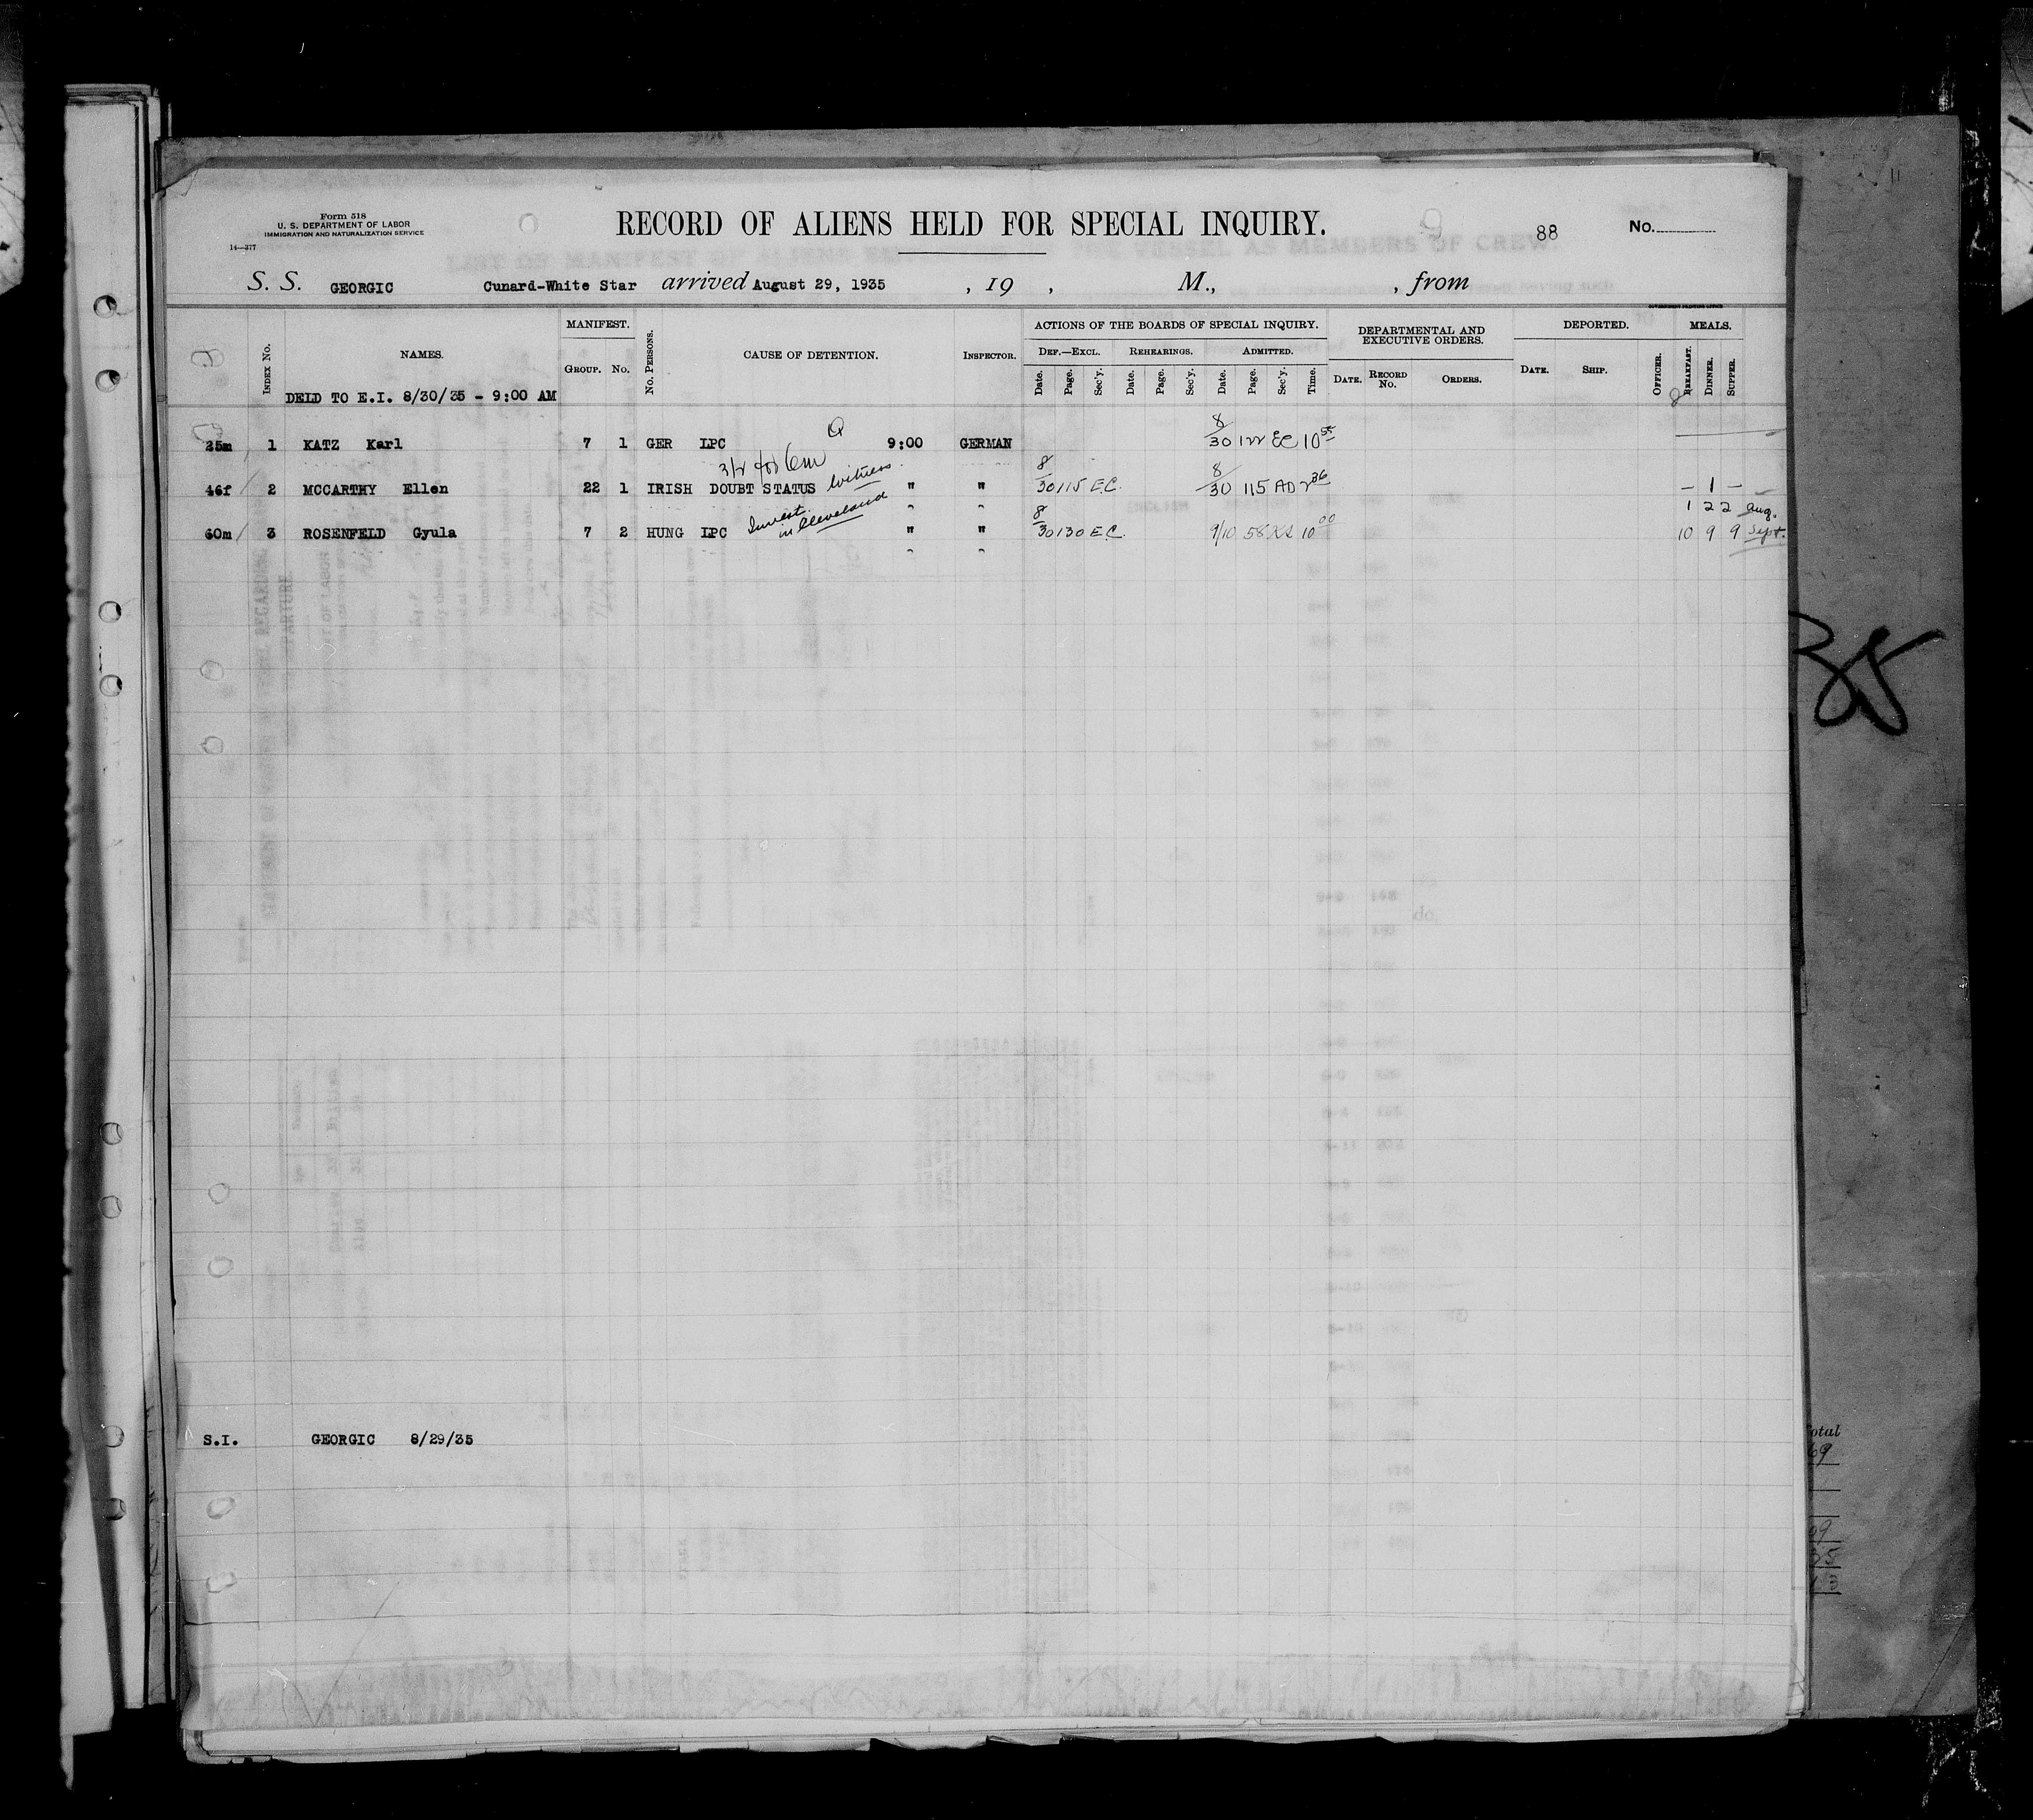 Form 518
U. S. DEPARTMENT OF LABOR
IMMIGRATION AND NATURALIZATION SERVICE
14—377
RECORD OF ALIENS HELD FOR SPECIAL INQUIRY.
88
No.
S. S. GEORGIC Cunard-White Star arrived August 29, 1935 , 19 , M., , from
INDEX No. NAMES. MANIFEST. GROUP. No. No. PERSONS. CAUSE OF DETENTION. INSPECTOR. ACTIONS OF THE BOARDS OF SPECIAL INQUIRY. DEPARTMENTAL AND EXECUTIVE ORDERS. DEPORTED. MEALS.
DEF.—EXCL. REHEARINGS. ADMITTED.
Date. Page. Sec'y. Date. Page. Sec'y. Date. Page. Sec'y. Time. DATE. RECORD No. ORDERS. DATE. SHIP. OFFICER. BREAKFAST. DINNER. SUPPER.
DELD TO E.I. 8/30/35 - 9:00 AM
25m 1 KATZ Karl 7 1 GER LPC 9:00 GERMAN 8/30 EC
46f 2 MCCARTHY Ellen 22 1 IRISH DOUBT STATUS Witness " " 8/30 115 E.C. 8/30 115 AD 2 36 – 1 –
1 2 2 Aug.
60m 3 ROSENFELD Gyula 7 2 HUNG LPC Invest. in Cleveland " " 8/30 130 E.C. 9/10 58 10 00 10 9 9 Sept.
S.I. GEORGIC 8/29/35
35
Total
69